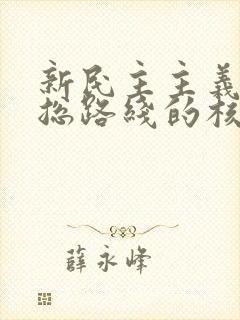 新民主主義
總路綫的核
薛永峰